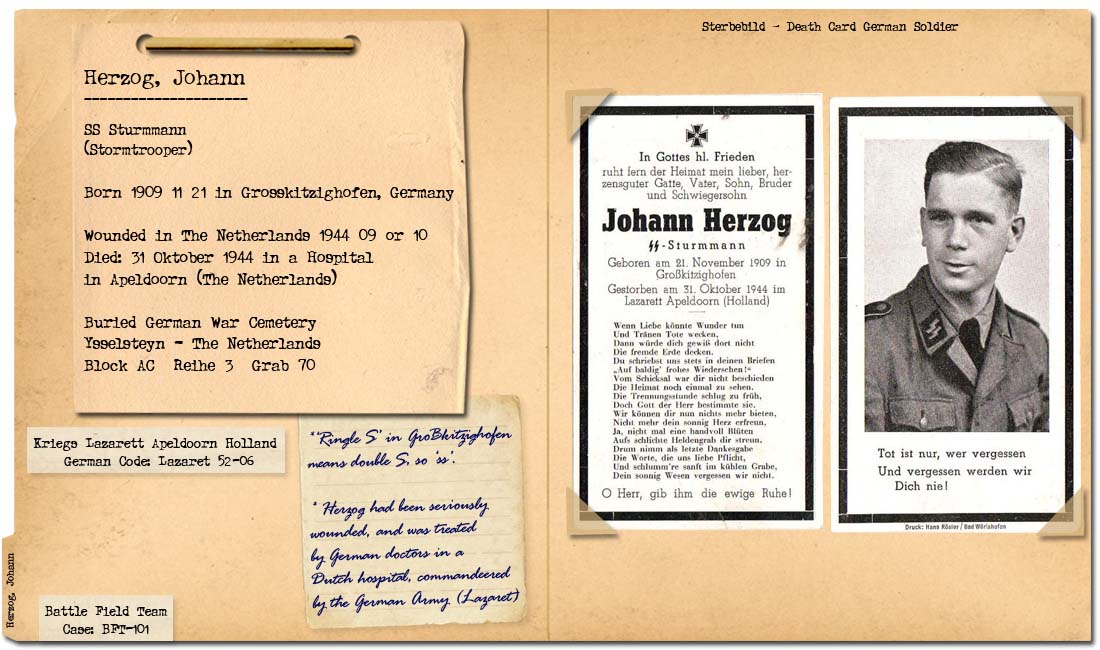 Herzog, Johann
SS Sturmmann
(Stormtrooper)
Born 1909 11 21 in Grosskitzighofen, Germany
Wounded in The Netherlands 1944 09 or 10
Died: 31 Oktober 1944 in a Hospital
in Apeldoorn (The Netherlands)
Buried German War Cemetery
Ysselsteyn - The Netherlands
Block AC Reihe 3 Grab 70
Kriegs Lazarett Apeldoorn Holland
German Code: Lazaret 52-06
* 'Ringle S' in Großkitzighofen
means double S, so 'ss'.
* Herzog had been seriously
wounded, and was treated
by German doctors in a
Dutch hospital, commandeered
by the German Army (Lazaret)
Battle Field Team
Case: BFT-101
Herzog, Johann
Sterbebild - Death Card German Soldier
In Gottes hl. Frieden
ruht fern der Heimat mein lieber, her-
zensguter Gatte, Vater, Sohn, Bruder
und Schwiegersohn
Johann Herzog
SS-Sturmmann
Geboren am 21. November 1909 in
Großkitzighofen
Gestorben am 31. Oktober 1944 im
Lazarett Apeldoorn (Holland)
Wenn Liebe könnte Wunder tun
Und Tränen Tote wecken,
Dann würde dich gewiß dort nicht
Die fremde Erde decken.
Du schriebst uns stets in deinen Briefen
„Auf baldig' frohes Wiedersehen!"
Vom Schicksal war dir nicht beschieden
Die Heimat noch einmal zu sehen.
Die Trennungsstunde schlug zu früh,
Doch Gott der Herr bestimmte sie.
Wir können dir nun nichts mehr bieten,
Nicht mehr dein sonnig Herz erfreun,
Ja, nicht mal eine handvoll Blüten
Aufs schlichte Heldengrab dir streun.
Drum nimm als letzte Dankesgabe
Die Worte, die uns liebe Pflicht,
Und schlumm're sanft im kühlen Grabe,
Dein sonnig Wesen vergessen wir nicht.
O Herr, gib ihm die ewige Ruhe!
Tot ist nur, wer vergessen
Und vergessen werden wir
Dich nie!
Druck: Hans Rösler / Bad Wörishofen